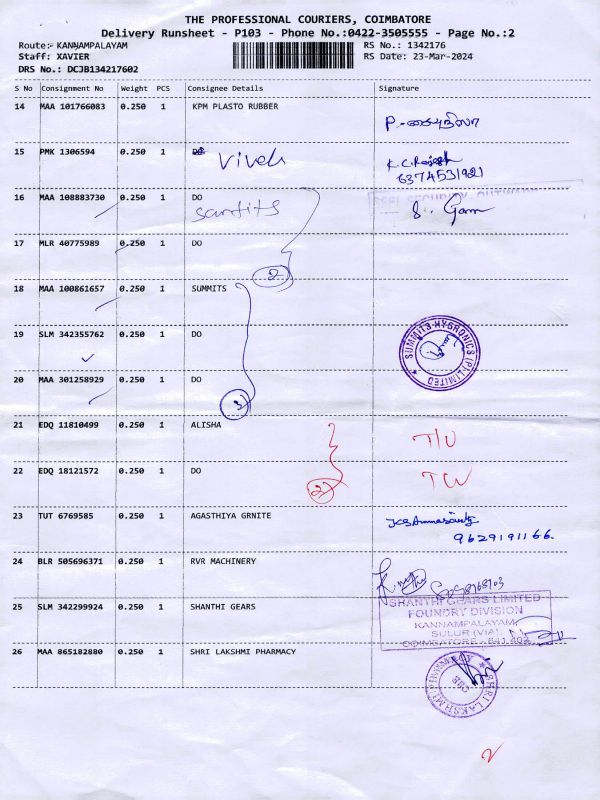 THE PROFESSIONAL COURIERS, COIMBATORE
Delivery Runsheet - P103 - Phone No.:0422-3505555 - Page No.:2
Route:- KANNAMPALAYAM RS No.: 1342176
Staff: XAVIER RS Date: 23-Mar-2024
DRS No.: DCJB134217602
S No Consignment No Weight PCS Consignee Details Signature
14 MAA 101766083 0.250 1 KPM PLASTO RUBBER
15 PMK 1306594 0.250 1 Vivek K.C.Rajesh
6374531921
16 MAA 108883730 0.250 1 DO
17 MLR 40775989 0.250 1 DO
2
18 MAA 100861657 0.250 1 SUMMITS
19 SLM 342355762 0.250 1 DO
SUMMITS HYGRONICS (P) LIMITED
20 MAA 301258929 0.250 1 DO
3
21 EDQ 11810499 0.250 1 ALISHA
22 EDQ 18121572 0.250 1 DO
2
23 TUT 6769585 0.250 1 AGASTHIYA GRNITE
9629191166.
24 BLR 505696371 0.250 1 RVR MACHINERY
25 SLM 342299924 0.250 1 SHANTHI GEARS
SHANTHI GEARS LIMITED
FOUNDRY DIVISION
KANNAMPALAYAM
SULUR (VIA)
COIMBATORE - 641 402
26 MAA 865182880 0.250 1 SHRI LAKSHMI PHARMACY
SHRI LAKSHMI PHARMACY
2